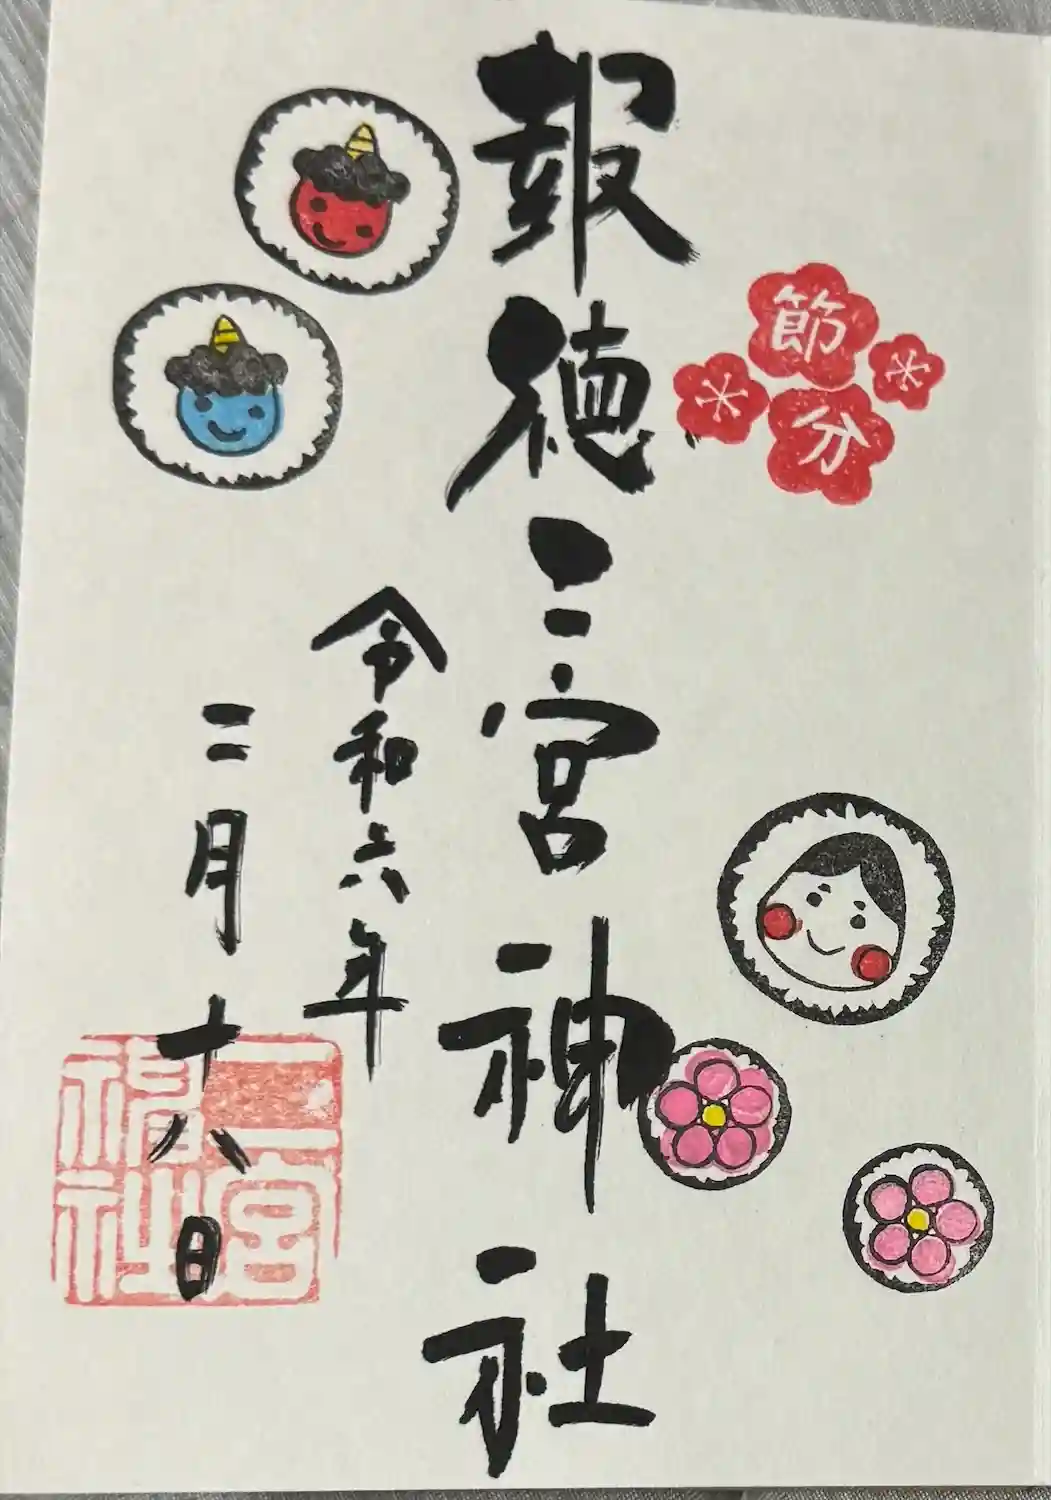 節分
報徳二宮神社
令和六年
二月十八日
二宮
神社